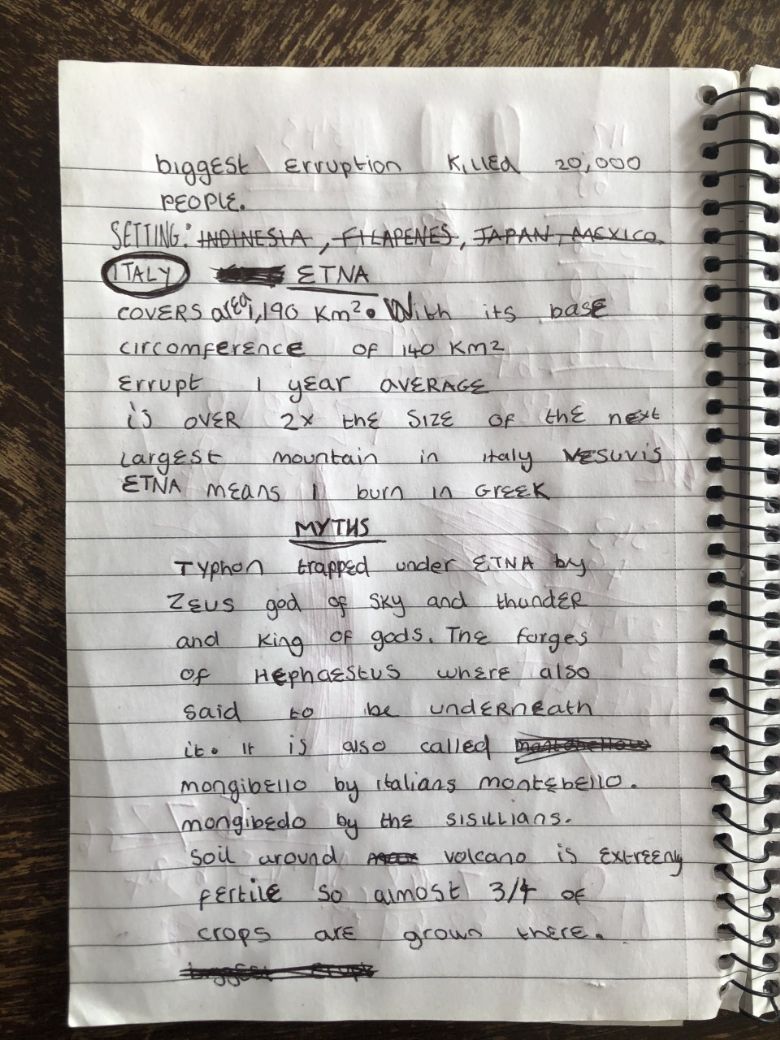 biggest erruption killed 20,000
PEOPLE.
SETTING: INDINESIA, FILAPENES, JAPAN, MEXICO,
ITALY ETNA
COVERS area 1,190 Km². With its base
circomference of 140 Km2
Errupt 1 year AVERAGE
is OVER 2x the SIZE of the next
Largest mountain in italy VESUVIS
ETNA means I burn in GREEK
MYTHS
Typhon trapped under ETNA by
ZEUS god of sky and thunder
and king of gods. The forges
of Hephaestus where also
said to be underneath
it. It is also called
mongibello by italians montebello.
mongibedo by the sisillians.
soil around volcano is extreeny
fertile so almost 3/4 of
crops are grown there.
biggest